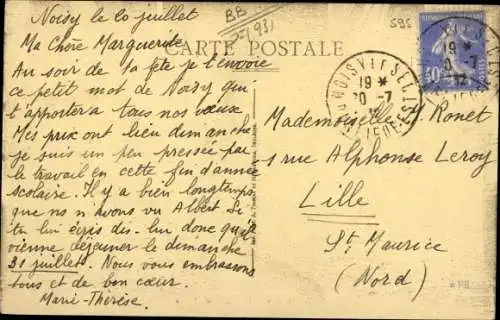 Noisy le 20 juillet
BB
1931
595
CARTE POSTALE
Ma Chère Marguerite
Au soir de ta fête je t'envoie
ce petit mot de Noisy qui
t'apportera tous nos voeux.
Mes prix ont lieu dimanche
je suis un peu pressée par
le travail en cette fin d'année
scolaire. Il y a bien longtemps
que nous n'avons vu Albert. Si
tu lui écris dis-lui donc qu'il
vienne déjeuner le dimanche
31 juillet. Nous vous embrassons
tous et de bon cœur.
Marie-Thérèse.
NOISY LE SEC
19 *
20 -7
40
Mademoiselle Ronet
1 rue Alphonse Leroy
Lille
St Maurice
(Nord)